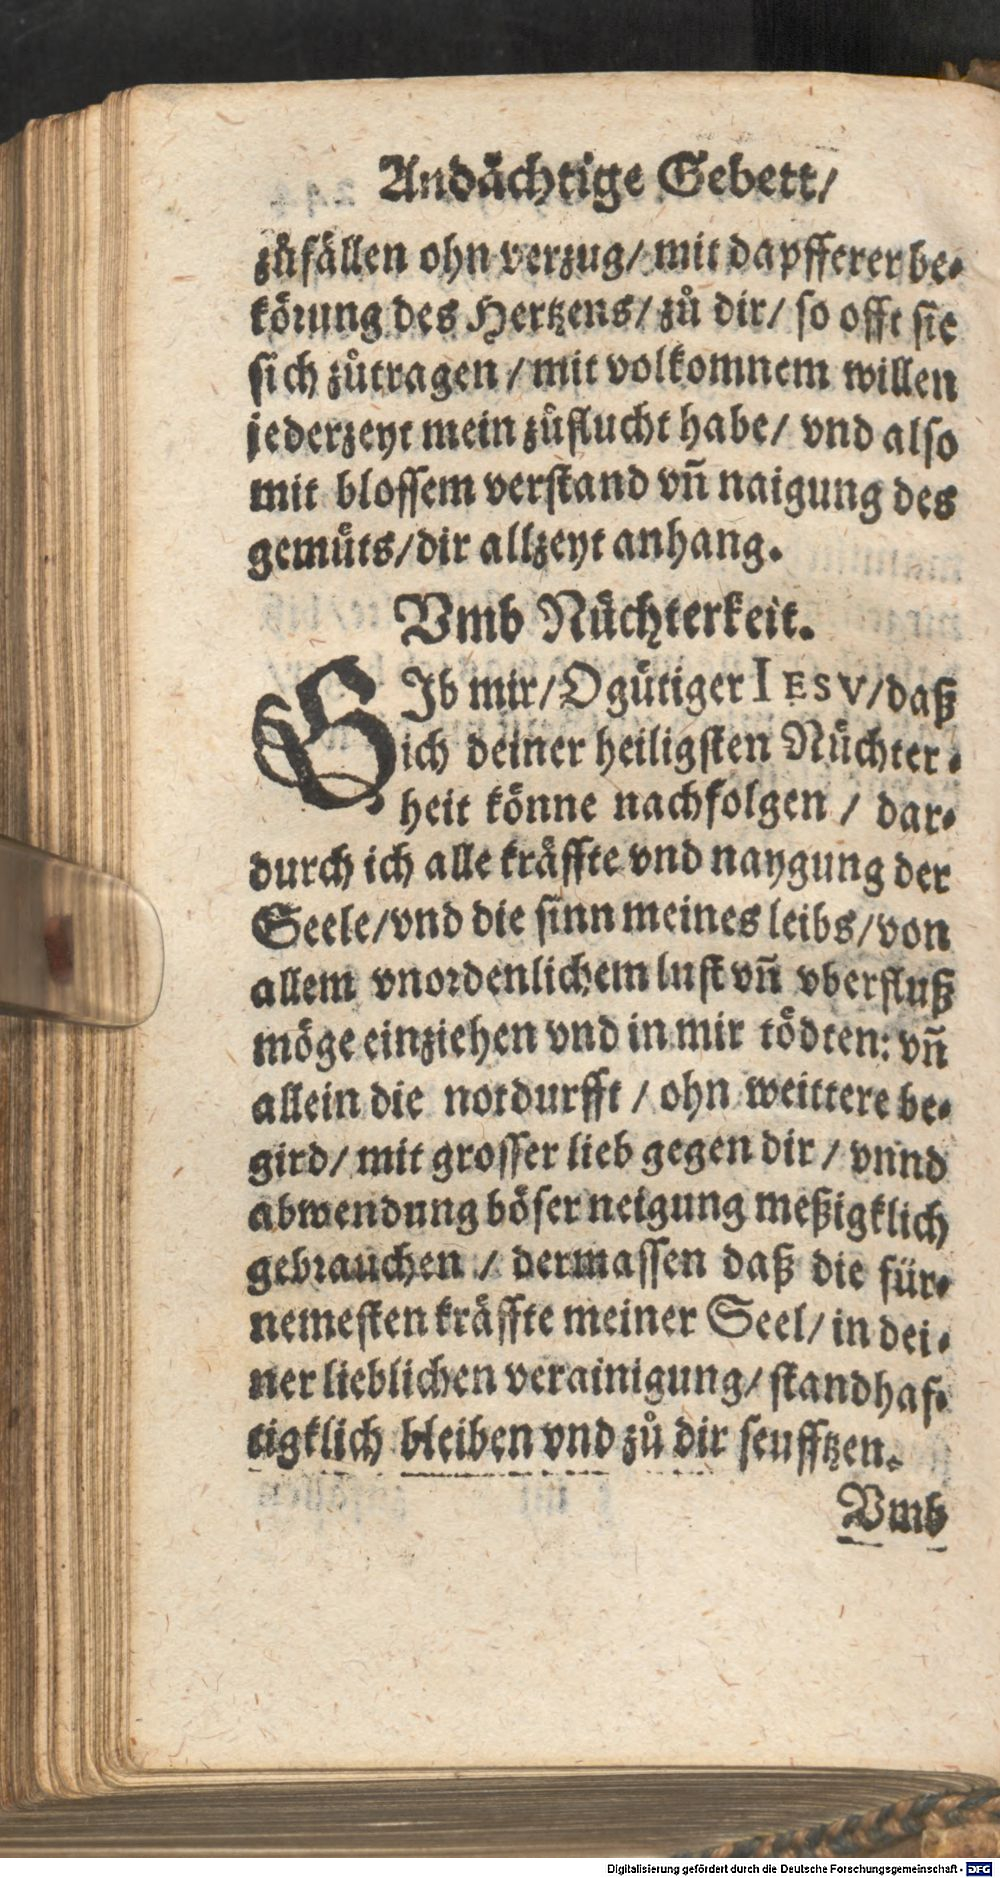 Andächtige Gebett/
zůfällen ohn verzug/ mit dapfferer be⸗
körung des Hertzens/ zů dir/ so offt sie
sich zůtragen / mit volkomnem willen
jederzeyt mein zůflucht habe/ vnd also
mit blossem verstand vñ naigung des
gemüts/dir allzeyt anhang.
Vmb Nüchterkeit.
GIb mir/ O gütiger IESV/daß
ich deiner heiligsten Nüchter⸗
heit könne nachfolgen / dar⸗
durch ich alle kräffte vnd naygung der
Seele/vnd die sinn meines leibs/von
allem vnordenlichem lust vñ vberfluß
möge einziehen vnd in mir tödten: vñ
allein die notdurfft / ohn weittere be⸗
gird/ mit grosser lieb gegen dir / vnnd
abwendung böser neigung meßigklich
gebrauchen / dermassen daß die für⸗
nemesten kräffte meiner Seel/ in dei⸗
ner lieblichen verainigung/ standhaf⸗
tigklich bleiben vnd zů dir seufftzen.
Vmb
Digitalisierung gefördert durch die Deutsche Forschungsgemeinschaft - DFG